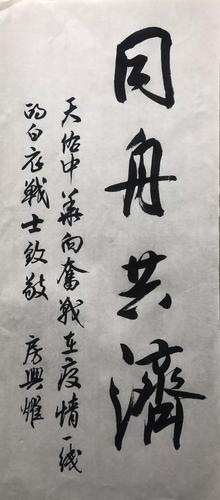 同舟共濟
天佑中華向奮战在疫情一线
的白衣戰士致敬 房興耀